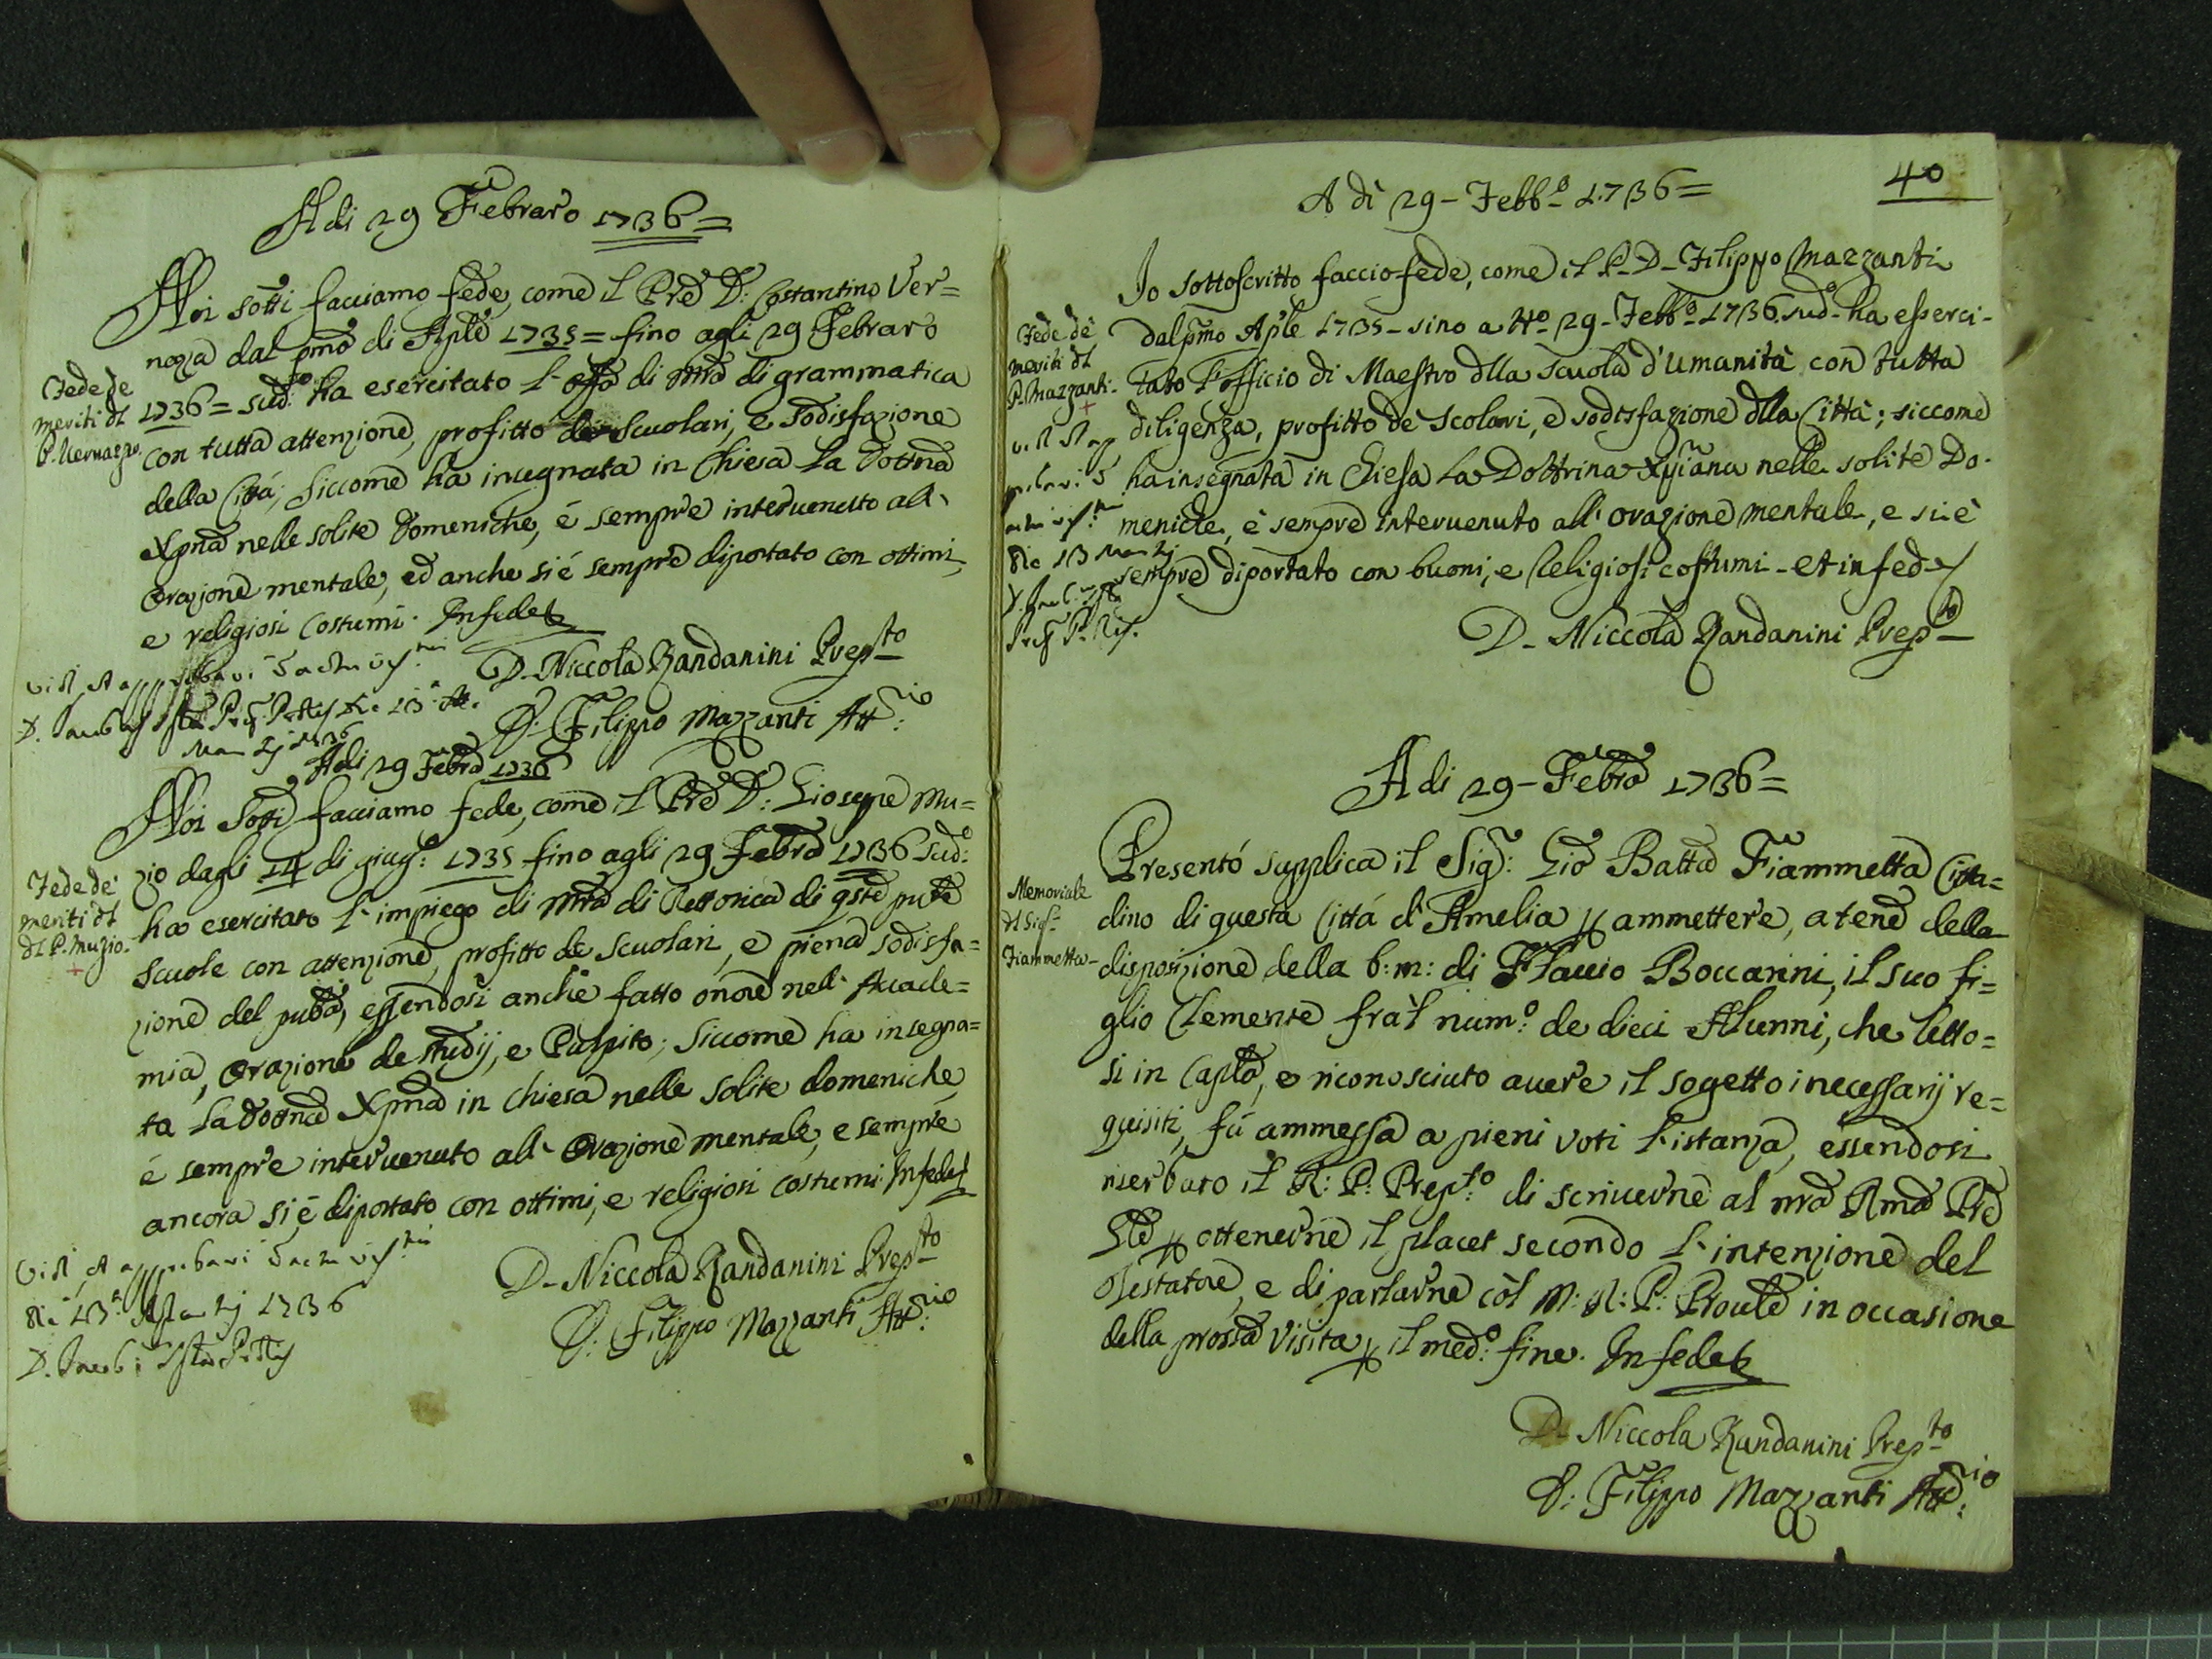 A di 29 Febraro 1736=
Noi sotti facciamo fede, come il Pre D: Costantino Ver=
nazza dal pmo di Aple 1735= fino agli 29 Febraro
Fede de
meriti dl
P. Vernazza.
1736= sud:o ha esercitato l'offo di Mro di grammatica
con tutta attenzione, profitto de Scuolari, e sodisfazione
della Città; siccome ha insegnata in Chiesa la dottna
Xpna nelle solite domeniche, é sempre intervenuto all'
Orazione mentale, ed anche si é sempre diportato con ottimi,
e religiosi costumi. In fede &
D. Niccola Zandanini Prepto
D: Filippo Mazzanti Att:rio
Vidi, et approbavi
A di 29 Febro 1736
Noi Sotti facciamo fede, come il Pre D: Gioseppe Mu=
zio dagli 14 di giug:o 1735 fino agli 29 Febro 1736 sud:o
Fede de
meriti dl
dl P. Muzio.
ha esercitato l'impiego di Mro di Rettorica di qste pube
Scuole con attenzione, profitto de Scuolari, e piena sodisfa=
zione del pubco, essendosi anche fatto onore nell' Accade=
mia, Orazione de studij, e Pulpito; siccome ha insegna=
ta la dottna Xpna in Chiesa nelle solite domeniche,
é sempre intervenuto all' Orazione mentale, e sempre
ancora si é diportato con ottimi, e religiosi costumi. In fede &
D. Niccola Zandanini Prepto
D: Filippo Mazzanti Att:rio
Vidi, et approbavi
die 13 1736
40
A dì 29- Febb.o 1736=
Io sottoscritto faccio fede, come il P. D. Filippo Mazzanti
Fede de
meriti dl
P. Mazzanti.
dal pmo Aple 1735- sino a 29- Febb.o 1736 sud.o ha esserci-
tato l'officio di Maestro dlla Scuola d'Umanità con tutta
diligenza, profitto de Scolari, e sodisfazione dlla Città; siccome
ha insegnata in Chiesa la Dottrina Xpiana nelle solite Do-
meniche, è sempre intervenuto all' orazione mentale, e si è
sempre diportato con buoni, e Religiosi costumi. et in fede
D. Niccola Zandanini Prepto
A di 29- Febro 1736=
Presentó supplica il Sig:r Gio Batta Fiammetta Citta=
Memoriale
dl Sigr
Fiammetta
dino di questa Cittá d'Amelia p ammettere, a tenore della
disposizione della b:m: di Flavio Boccarini, il suo fi=
glio Clemente frà'l num:o de dieci Alunni, che letto=
si in Caplo, e riconosciuto avere il sogetto i necessarij re=
quisiti, fú ammessa a pieni voti l'istanza, essendosi
riserbato il R: P: Prepto di scriverne al nro Rmo Pre
Gle p ottenerne il placet secondo l'intenzione del
Testatore, e di parlarne còl M: R: P: Proule in occasione
della prossa Visita p il med:o fine. In fede &
D. Niccola Zandanini Prepto
D: Filippo Mazzanti Att:rio